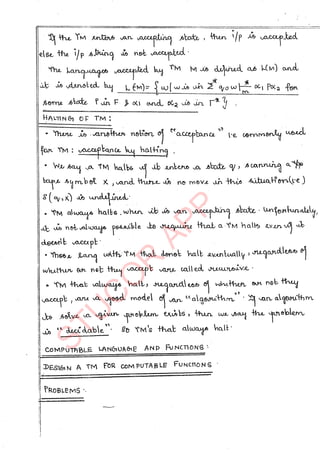 If the TM enters an accepting state, then i/p is accepted
else the i/p string is not accepted.
The Languages accepted by TM M is defined as L(M) and
it is denoted by L(M)= { w | w is in Σ* q₀w |*m α₁ P α₂ for
some state P in F & α₁ and α₂ is in Γ* }.
HALTING OF TM:
• There is another notion of "acceptance" i.e commonly used
for TM: acceptance by halting.
• We say a TM halts if it enters a state q, scanning a i/p
tape symbol X, and there is no move in this situation (i.e)
δ(q,x) is undefined.
• TM always halts when it is in accepting state. Unfortunately,
it is not always possible to require that a TM halts even if it
doesn't accept.
• Those Lang with TM that donot halt eventually, regardless of
whether or not they accept are called recursive.
• TM that always halt, regardless of whether or not they
accept, are a good model of an "algorithm". If an algorithm
to solve a given problem exists, then we say the problem
is "decidable". So TM's that always halt.
COMPUTABLE LANGUAGE AND FUNCTIONS:
DESIGN A TM FOR COMPUTABLE FUNCTIONS
PROBLEMS: